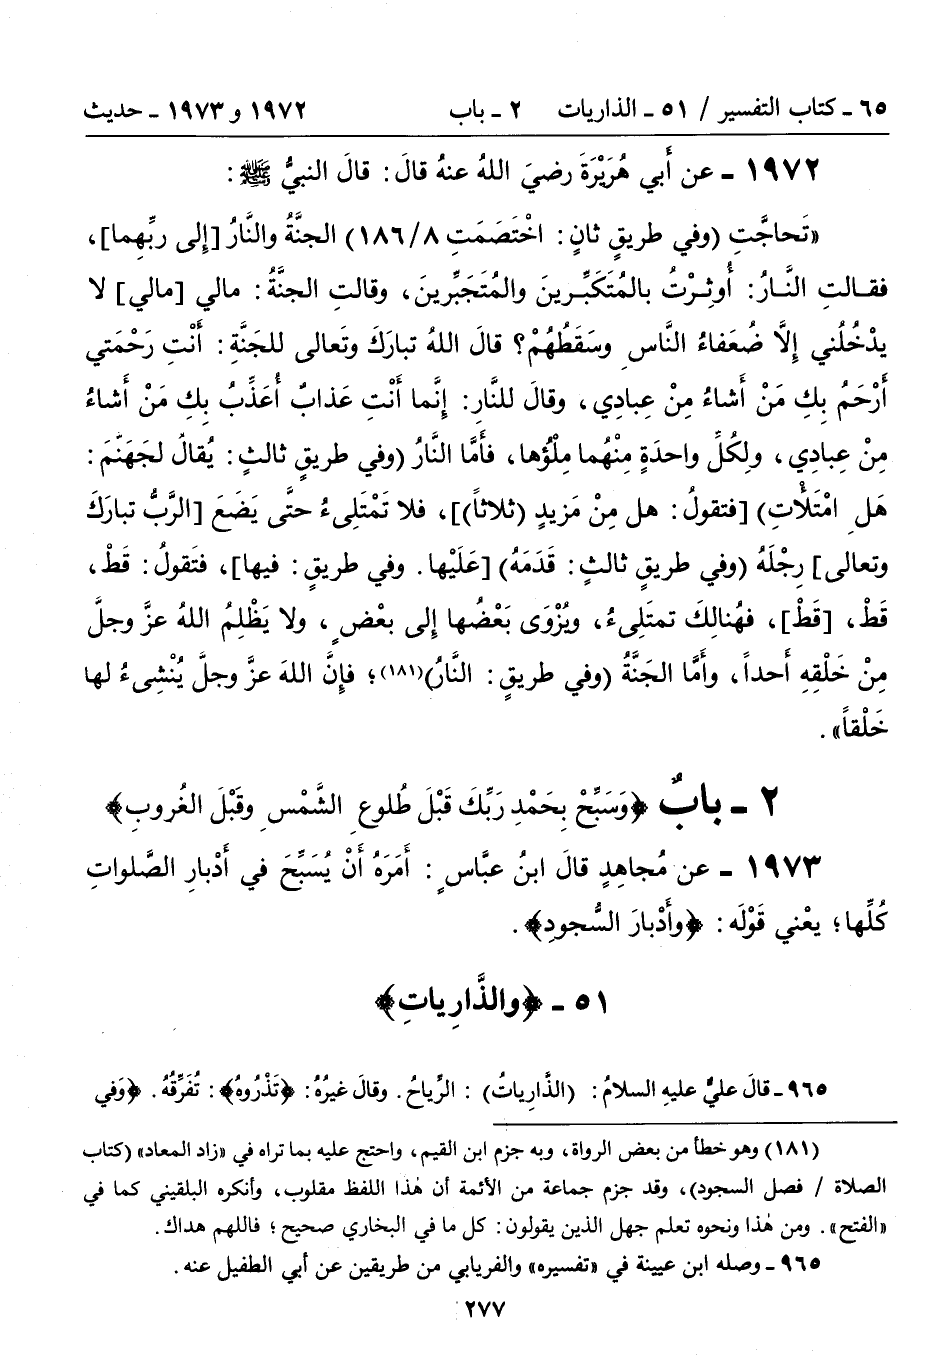 ٦٥ ـ كتاب التفسير / ٥١ ـ الذاريات ٢ ـ باب ١٩٧٢ و ١٩٧٣ ـ حديث
١٩٧٢ ـ عن أَبي هُرَيْرَةَ رضيَ اللهُ عنهُ قالَ: قالَ النبيُّ ﷺ:
«تَحاجَّتِ (وفي طريقٍ ثانٍ: اخْتَصَمَتِ ١٨٦/٨) الجنَّةُ والنَّارُ [إلى ربِّهما]،
فقـالتِ النَّـارُ: أُوثِـرْتُ بالمُتَكَبِّـرينَ والمُتَجَبِّرينَ، وقالتِ الجنَّةُ: مالي [مالي] لا
يدْخُلُني إلَّا ضُعَفاءُ النَّاسِ وسَقَطُهُمْ؟ قالَ اللهُ تبارَكَ وتَعالى للجَنَّةِ: أَنْتِ رَحْمَتي
أَرْحَمُ بِكِ مَنْ أَشاءُ مِنْ عِبادِي، وقالَ للنارِ: إنَّما أَنْتِ عَذابٌ أُعَذِّبُ بِكِ مَنْ أَشاءُ
مِنْ عِبادِي، ولِكُلِّ واحدَةٍ مِنْهُما مِلْؤُها، فأَمَّا النَّارُ (وفي طريقٍ ثالثٍ: يُقالُ لجَهَنَّمَ:
هَلِ امْتَلْأتِ) [فتقولُ: هل مِنْ مَزيدٍ (ثلاثاً)]، فلا تَمْتَلِىءُ حتَّى يَضَعَ [الرَّبُّ تبارَكَ
وتعالى] رِجْلَهُ (وفي طريقٍ ثالثٍ: قَدَمَهُ) [عَلَيْها. وفي طريقٍ: فيها]، فتَقولُ: قَطْ،
قَطْ، [قَطْ]، فهُنالِكَ تمتَلِىءُ، ويُزْوَى بَعْضُها إلى بعْضٍ، ولا يَظْلِمُ اللهُ عزَّ وجلَّ
مِنْ خَلْقِهِ أَحداً، وأَمَّا الجَنَّةُ (وفي طريقٍ: النَّارُ)(١٨١)؛ فإنَّ اللهَ عزَّ وجلَّ يُنْشِىءُ لها
خَلْقاً».
٢ ـ بابٌ ﴿وَسَبِّحْ بِحَمْدِ رَبِّكَ قَبْلَ طُلوعِ الشَّمْسِ وقَبْلَ الغُروبِ﴾
١٩٧٣ ـ عن مُجاهِدٍ قالَ ابنُ عبَّاسٍ: أَمَرَهُ أَنْ يُسَبِّحَ في أَدْبارِ الصَّلواتِ
كُلِّها؛ يعْني قَوْلَه: ﴿وأَدْبارَ السُّجودِ﴾.
٥١ ـ ﴿والذَّارِياتِ﴾
٩٦٥ ـ قالَ عليٌّ عليهِ السلامُ: (الذَّارِياتُ): الرِّياحُ. وقالَ غيرُهُ: ﴿تَذْروهُ﴾: تُفَرِّقُهُ. ﴿وَفي
(١٨١) وهو خطأ من بعض الرواة، وبه جزم ابن القيم، واحتج عليه بما تراه في «زاد المعاد» (كتاب
الصلاة / فصل السجود)، وقد جزم جماعة من الأئمة أن هٰذا اللفظ مقلوب، وأنكره البلقيني كما في
«الفتح». ومن هٰذا ونحوه تعلم جهل الذين يقولون: كل ما في البخاري صحيح؛ فاللهم هداك.
٩٦٥ ـ وصله ابن عيينة في «تفسيره» والفريابي من طريقين عن أبي الطفيل عنه.
٢٧٧